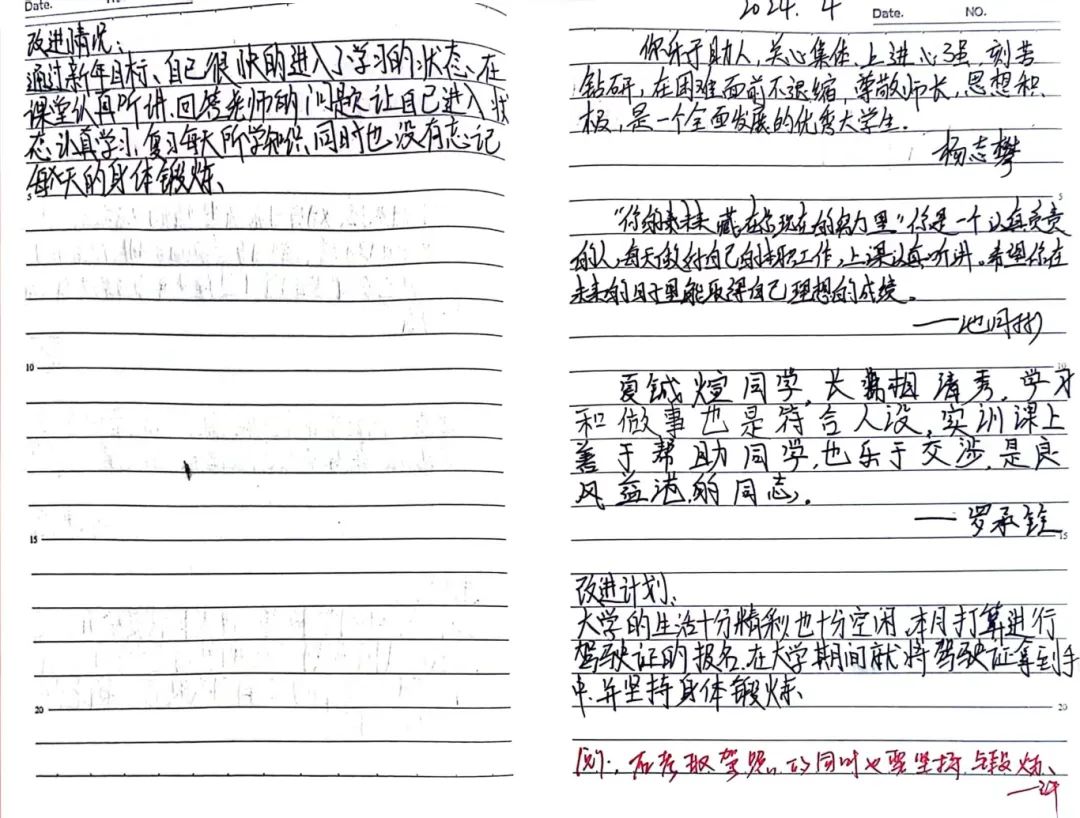 Date.
No.
改进情况：
通过新年目标、自己很快的进入了学习的状态、在
课堂认真听讲.回答老师的问题让自己进入状
态认真学习,复习每天所学知识、同时也没有忘记
每天的身体锻炼、
5
10
15
20
2024. 4
Date.
NO.
你乐于助人,关心集体,上进心强,刻苦
钻研,在困难面前不退缩,尊敬师长,思想积
极,是一个全面发展的优秀大学生.
杨志攀
5
“你的未来藏在你现在的努力里”你是一个认真负责
的人,每天做好自己的本职工作,上课认真听讲。希望你在
未来的日子里能取得自己理想的成绩。
10
夏铖煊同学,长相清秀,学习
和做事也是符合人设,实训课上
善于帮助同学,也乐于交涉,是良
风益港的同志,.
—— 罗承铨
15
改进计划:
大学的生活十分精彩也十分空闲.本月打算进行
驾驶证的报名.在大学期间就将驾驶证拿到手
中.并坚持身体锻炼、
20
在考取驾照的同时也要坚持锻炼、